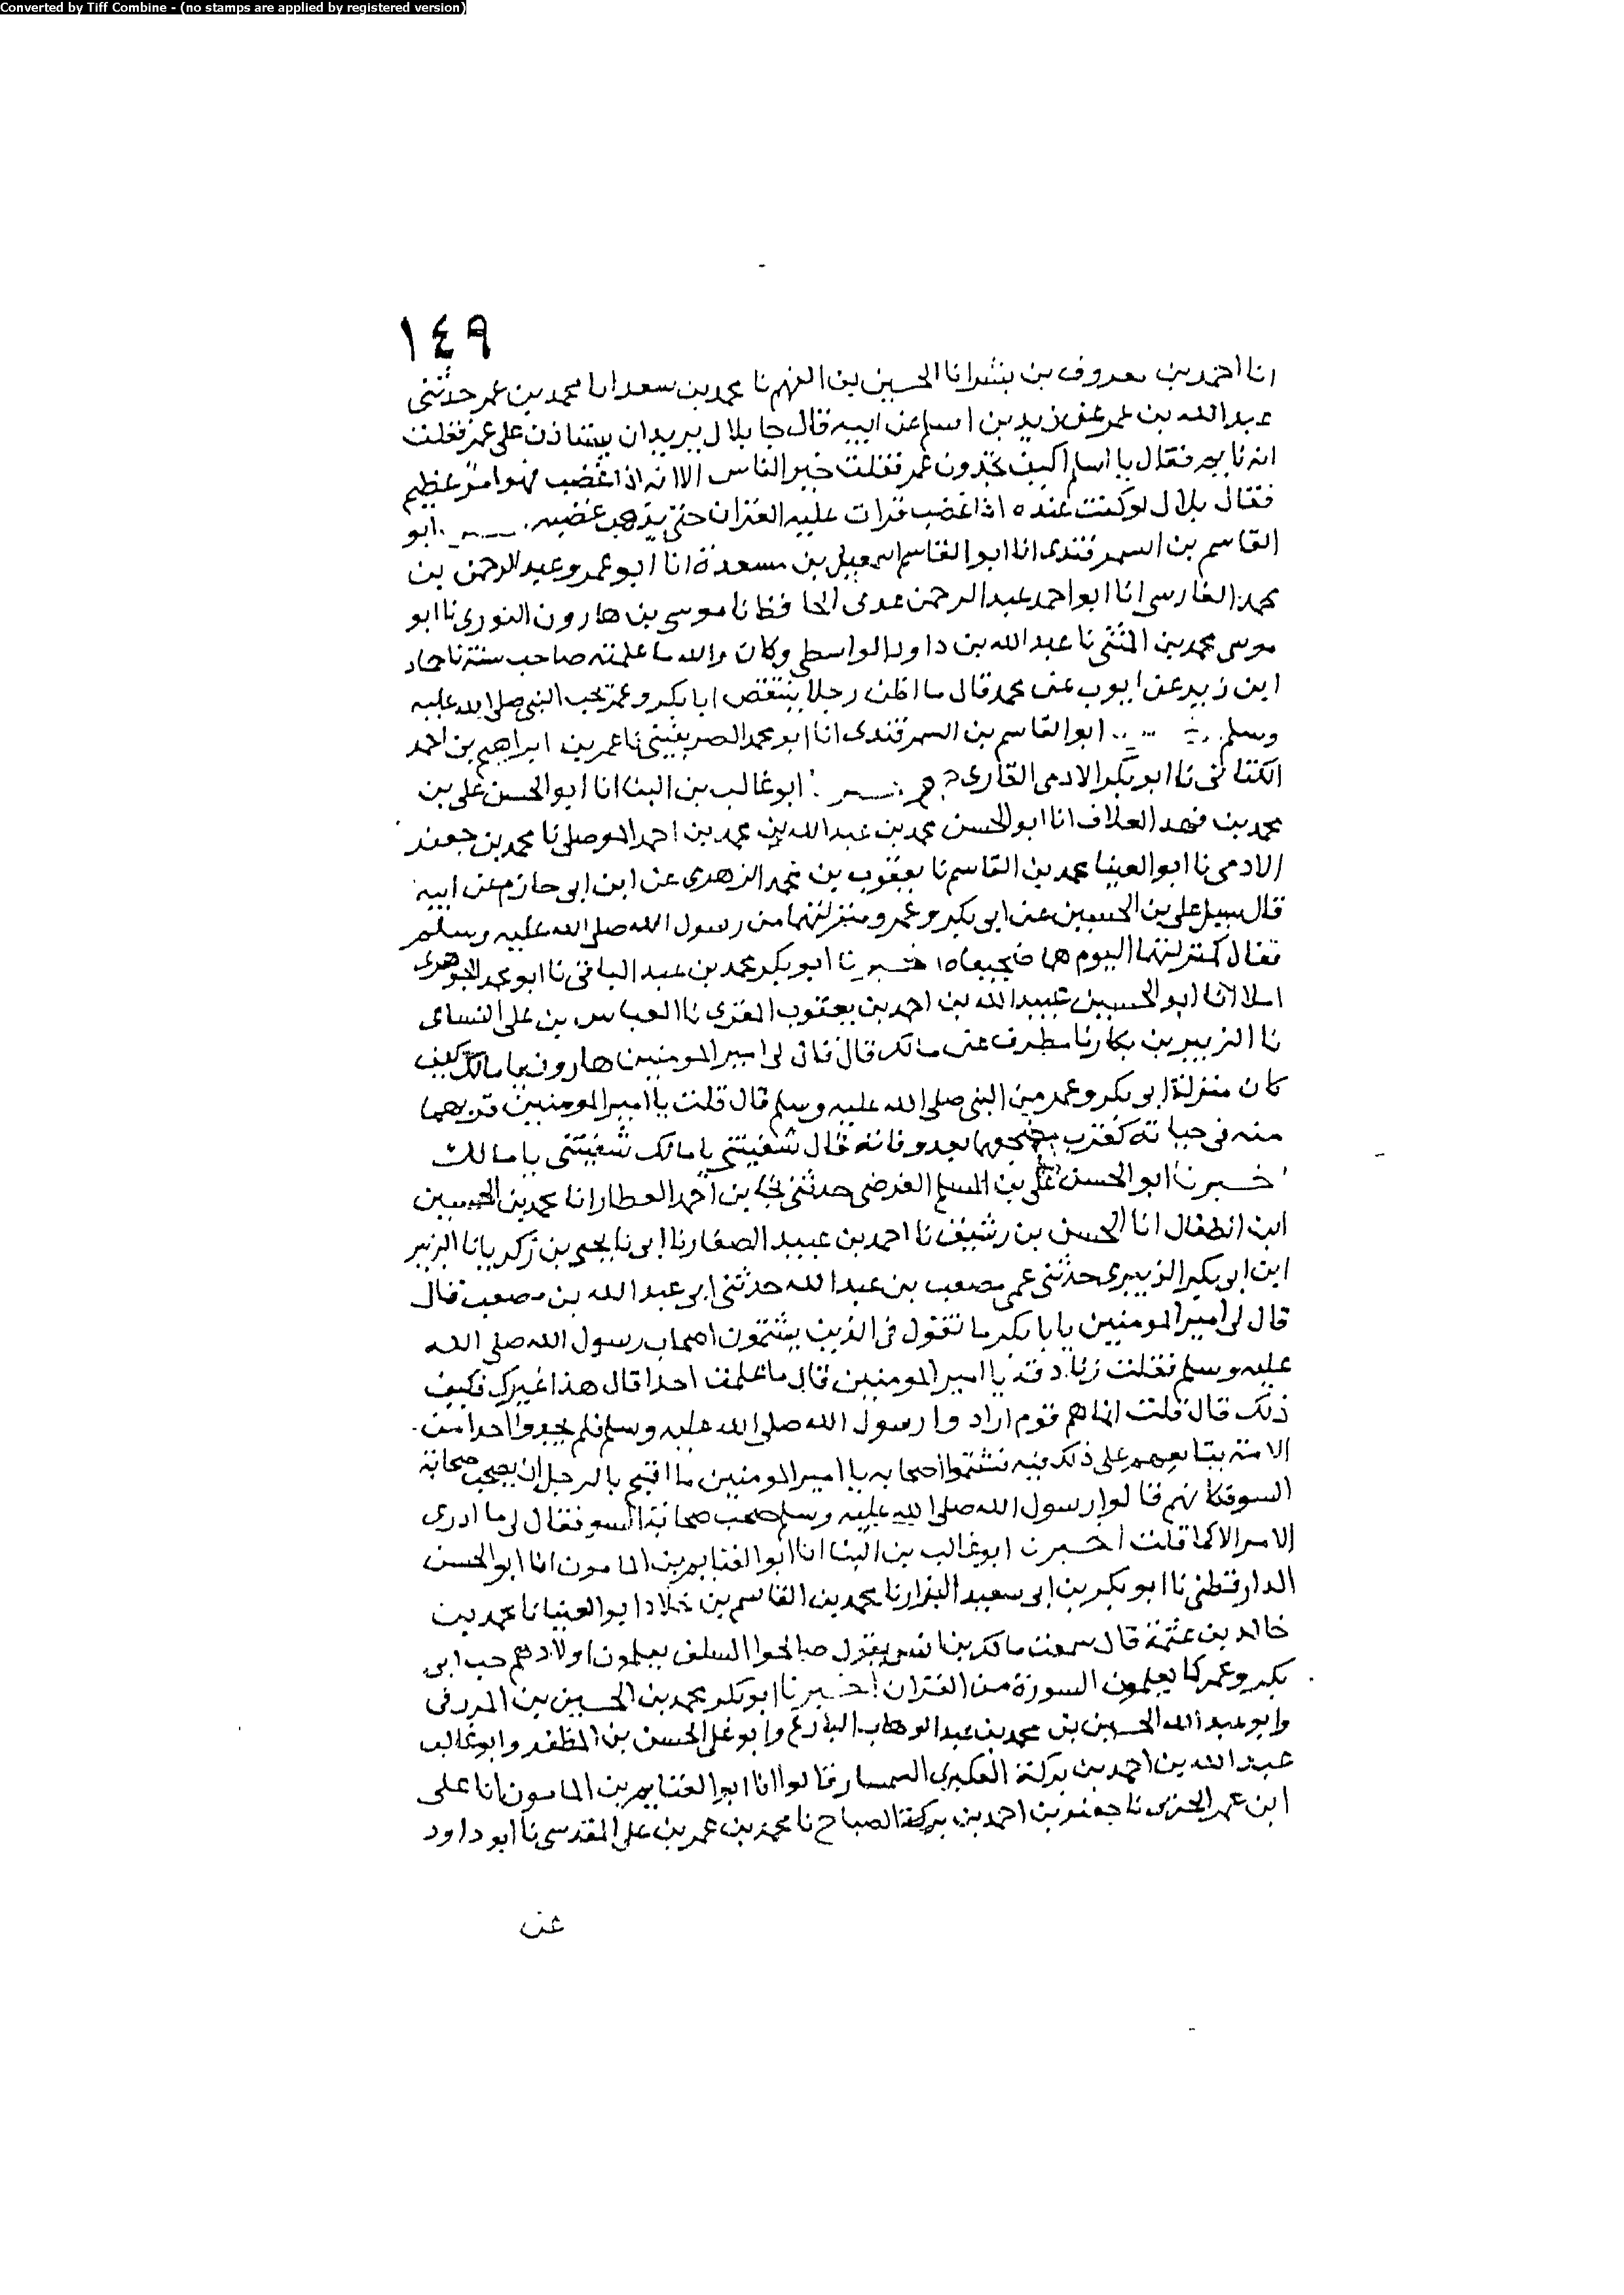 Converted by Tiff Combine - (no stamps are applied by registered version)
١٤٩
انا احمد بن معروف بن بشر انا الحسين بن الفهم نا محمد بن سعد انا محمد بن عمر حدثني
عبد الله بن عمر عن زيد بن اسلم عن ابيه قال جا بلال يريد ان يستاذن على عمر فقلت
انه نايم فقال يا اسلم كيف تجدون عمر فقلت خير الناس الا انه اذا غضب فهو امر عظيم
فقال بلال لو كنت عنده اذا غضب قرات عليه القران حتى يذهب غضبه ابو
القاسم بن السمرقندى انا ابو القاسم اسمعيل بن مسعدة انا ابو عمرو عبد الرحمن بن
محمد الفارسى انا ابو احمد عبد الرحمن عدى الحافظ نا موسى بن هارون التوزى نا ابو
موسى محمد بن المثنى نا عبد الله بن داود الواسطى وكان والله ما علمته صاحب سنة نا حماد
ابن زيد عن ايوب عن محمد قال ما اظن رجلا ينتقص ابا بكر وعمر يحب النبى صلى الله عليه
وسلم ابو القاسم بن السمرقندى انا ابو محمد الصريفينى نا عمر بن ابراهيم بن احمد
الكتانى نا ابو بكر الادمى القارى ح ابو غالب بن البنا انا ابو الحسن على بن
محمد بن فهد العلاف انا ابو الحسن محمد بن عبد الله بن محمد بن احمد الموصلى نا محمد بن جعفر
الادمى نا ابو العينا محمد بن القاسم نا يعقوب بن محمد الزهرى عن ابن ابى حازم عن ابيه
قال سيل على بن الحسين عن ابى بكر وعمر ومنزلتهما من رسول الله صلى الله عليه وسلم
فقال كمنزلتهما اليوم هما ضجيعاه اخبرنا ابو بكر محمد بن عبد الباقى نا ابو محمد الجوهرى
املا انا ابو الحسين عبيد الله بن احمد بن يعقوب المقرى نا العباس بن على النساى
نا الزبير بن بكار نا مطرف عن مالك قال قال لى امير المومنين هارون يا مالك كيف
كان منزلة ابى بكر وعمر من النبى صلى الله عليه وسلم قال قلت يا امير المومنين قربهما
منه فى حياته كقرب مضجعهما بعد وفاته قال شفيتنى يا مالك شفيتنى يا مالك
اخبرنا ابو الحسن على بن المسلم الفرضى حدثنى نجا بن احمد العطار انا محمد بن الحسين
ابن الطفال انا الحسن بن رشيق نا احمد بن عبيد الصفار نا ابى نا يحيى بن زكريا نا الزبير
ابن ابى بكر الزبيرى حدثنى عمى مصعب بن عبد الله حدثنى ابى عبد الله بن مصعب قال
قال لى امير المومنين يا با بكر ما تقول فى الذين يشتمون اصحاب رسول الله صلى الله
عليه وسلم فقلت زنادقة يا امير المومنين قال ما علمت احدا قال هذا غيرك فكيف
ذلك قال قلت انما هم قوم ارادوا رسول الله صلى الله عليه وسلم فلم يجدوا احدا من
الامة يتابعهم على ذلك فيه فشتموا اصحابه يا امير المومنين ما اقبح بالرجل ان يصحب صحابة
السو فكانهم قالوا رسول الله صلى الله عليه وسلم صحب صحابة السو فقال لى ما ادرى
الامر الا كما قلت اخبرنا ابو غالب بن البنا انا ابو الغنايم بن المامون انا ابو الحسن
الدارقطنى نا ابو بكر بن ابى سعيد البزار نا محمد بن القاسم بن خلاد ابو العينا نا محمد بن
خالد بن عثمة قال سمعت مالك بن انس يقول صالحوا السلف يعلمون اولادهم حب ابى
بكر وعمر كما يعلمون السورة من القران اخبرنا ابو بكر محمد بن الحسين بن المزرفى
وابو عبد الله الحسين بن محمد بن عبد الوهاب البارع وابو على الحسن بن المظفر وابو غالب
عبد الله بن احمد بن بركة العكبرى السمسار قالوا انا ابو الغنايم بن المامون انا على
ابن عمر الحربى نا جعفر بن احمد بن بركة الصباح نا محمد بن عمر بن على المقدسى نا ابو داود
عن